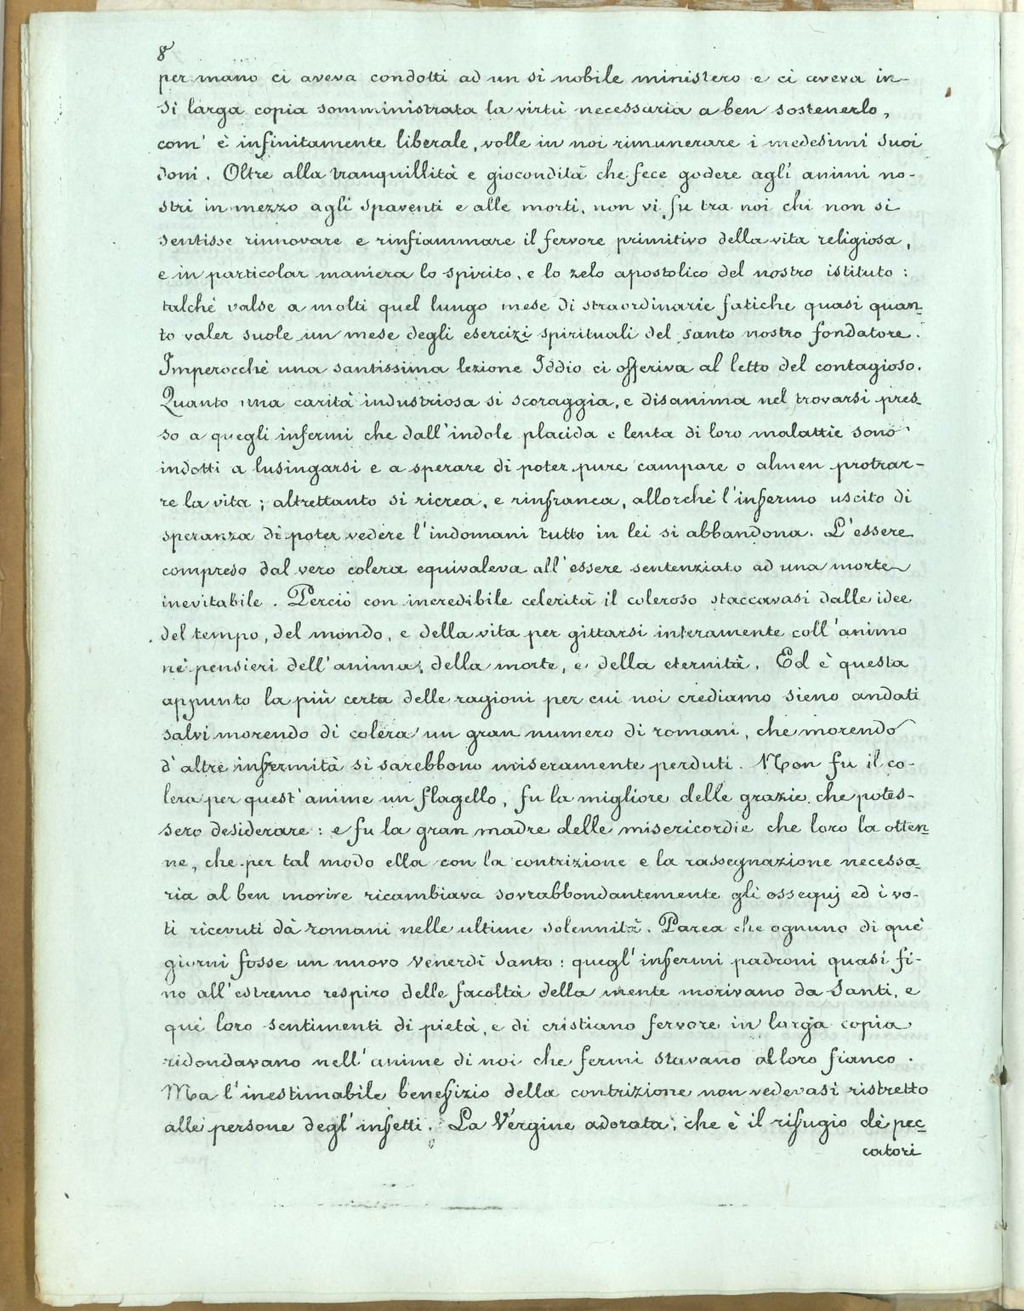 8
per mano ci aveva condotti ad un sì nobile ministero e ci aveva in
sì larga copia somministrata la virtù necessaria a ben sostenerlo,
com' è infinitamente liberale, volle in noi rimunerare i medesimi suoi
doni. Oltre alla tranquillità e giocondità che fece godere agli animi no-
stri in mezzo agli spaventi e alle morti, non vi fu tra noi chi non si
sentisse rinnovare e rinfiammare il fervore primitivo della vita religiosa,
e in particolar maniera lo spirito, e lo zelo apostolico del nostro istituto:
talchè valse a molti quel lungo mese di straordinarie fatiche quasi quan-
to valer suole un mese degli esercizi spirituali del santo nostro fondatore.
Imperocchè una santissima lezione Iddio ci offeriva al letto del contagioso.
Quanto una carità industriosa si scoraggia, e disanima nel trovarsi pres-
so a quegli infermi che dall'indole placida e lenta di loro malattie sono
indotti a lusingarsi e a sperare di poter pure campare o almen protrar-
re la vita; altrettanto si ricrea, e rinfranca, allorchè l'infermo uscito di
speranza di poter vedere l'indomani tutto in lei si abbandona. L'essere
compreso dal vero colera equivaleva all'essere sentenziato ad una morte
inevitabile. Perciò con incredibile celerità il coleroso staccavasi dalle idee
del tempo, del mondo, e della vita per gittarsi interamente coll'animo
nè pensieri dell'anima, della morte, e della eternità. Ed è questa
appunto la più certa delle ragioni per cui noi crediamo sieno andati
salvi morendo di colera un gran numero di romani, che morendo
d'altre infermità si sarebbono miseramente perduti. Non fu il co-
lera per quest'anime un flagello, fu la migliore delle grazie che potes-
sero desiderare: e fu la gran madre delle misericordie che loro la otten-
ne, che per tal modo ella con la contrizione e la rassegnazione necessa-
ria al ben morire ricambiava sovrabbondantemente gli ossequj ed i vo-
ti ricevuti dà romani nelle ultime solennità. Parea che ognuno di què
giorni fosse un nuovo Venerdì Santo: quegl'infermi padroni quasi fi-
no all'estremo respiro delle facoltà della mente morivano da Santi, e
què loro sentimenti di pietà, e di cristiano fervore in larga copia
ridondavano nell'anime di noi che fermi stavano al loro fianco.
Ma l'inestimabile benefizio della contrizione non vedevasi ristretto
alle persone degl'infetti. La Vergine adorata, che è il rifugio dè pec-
catori